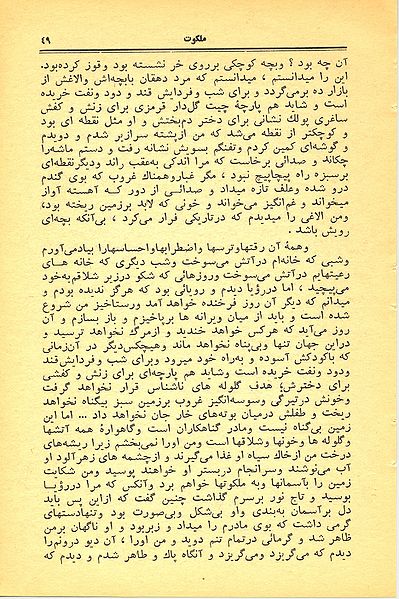 ملکوت
۴۹
آن چه بود ؟ وبچه کوچکی برروی خر نشسته بود وقوز کرده‌بود.
این را میدانستم ، میدانستم که مرد دهقان بابچه‌اش والاغش از
بازار ده برمی‌گردد و برای شب وفردایش قند و دود ونفت خریده
است و شاید هم پارچهٔ چیت گل‌دار قرمزی برای زنش و کفش
ساغری پولك نشانی برای دختر دم‌بختش و او مثل نقطه ای بود
و کوچکتر از نقطه می‌شد که من ازپشته سرازیر شدم و دویدم
و گوشه‌ای کمین کردم وتفنگم بسویش نشانه رفت و دستم ماشه‌را
چکاند و صدائی برخاست که مرا اندکی به‌عقب راند ودیگرنقطه‌ای
برسبزه راه پیچاپیچ نبود ، مگر غباروهمناك غروب که بوی گندم
درو شده وعلف تازه میداد و صدائی از دور که آهسته آواز
میخواند و غم‌انگیز می‌خواند و خونی که لابد برزمین ریخته بود،
ومن الاغی را میدیدم که درتاریکی فرار می‌کرد ، بی‌آنکه بچه‌ای
رویش باشد .
وهمهٔ آن رقتهاوترسها واضطرابهاواحساسهارا بیادمی‌آورم
وشبی که خانه‌ام درآتش می‌سوخت وشب دیگری که خانه های
رعیتهایم درآتش می‌سوخت وروزهائی که شکو درزیر شلاقم به‌خود
می‌پیچید ، اما دررؤیا دیدم و رویائی بود که هرگز ندیده بودم و
میدانم که دیگر آن روز فرخنده خواهد آمد ورستاخیز من شروع
شده است و باید از میان ویرانه ها برپاخیزم و باز بسازم و آن
روز می‌آید که هرکس خواهد خندید و ازمرگ نخواهد ترسید و
دراین جهان تنها وبی‌پناه نخواهد ماند وهیچکس‌دیگر در آن‌زمانی
که باکودکش آسوده و به‌راه خود میرود وبرای شب وفردایش‌قند
ودود ونفت خریده است وشاید هم پارچه‌ای برای زنش و کفشی
برای دخترش؛ هدف گلوله های ناشناس قرار نخواهد گرفت
وخونش درتیرگی وسوسه‌انگیز غروب برزمین سبز بیگناه نخواهد
ریخت و طفلش درمیان بوته‌های خار جان نخواهد داد ... اما این
زمین بی‌گناه نیست ومادر گناهکاران است وگاهوارهٔ همه آتشها
وگلوله ها وخونها وشلاقها است ومن اورا نمی‌بخشم زیرا ریشه‌های
درخت من ازخاك سیاه او غذا می‌گیرند و ازچشمه های زهرآلود او
آب می‌نوشند وسرانجام دربستر او خواهند پوسید ومن شکایت
زمین را بآسمانها وبه ملکوتها خواهم برد وآنکس که مرا دررؤیا
بوسید و تاج نور برسرم گذاشت چنین گفت که ازاین پس باید
دل برآسمان به‌بندی واو بی‌شکل وبی‌صورت بود وتنهادستهای
گرمی داشت که بوی مادرم را میداد و زبربود و او ناگهان برمن
ظاهر شد و گرمائی درتمام تنم دوید و من اورا ، آن دیو درونم‌را
دیدم که می‌گریزد ومی‌گریزد و آنگاه پاك و طاهر شدم و دیدم که